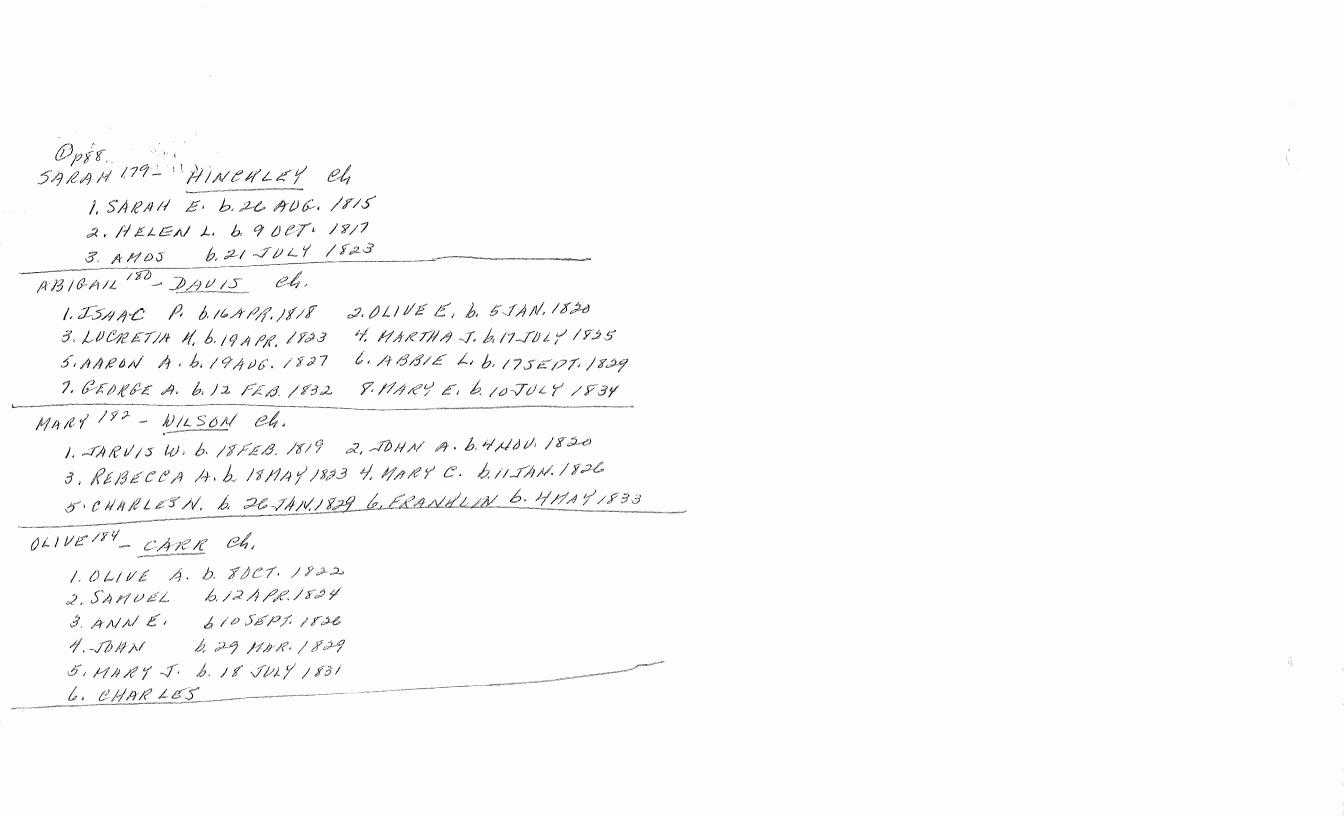 ① p88
SARAH 179 - HINCKLEY ch
1. SARAH E. b. 26 AUG. 1815
2. HELEN L. b. 9 OCT. 1817
3. AMOS b. 21 JULY 1823
ABIGAIL 180 - DAVIS ch.
1. ISAAC P. b. 16 APR. 1818 2. OLIVE E. b. 5 JAN. 1820
3. LUCRETIA H. b. 19 APR. 1823 4. MARTHA J. b. 17 JULY 1825
5. AARON A. b. 19 AUG. 1827 6. ABBIE L. b. 17 SEPT. 1829
7. GEORGE A. b. 12 FEB. 1832 8. MARY E. b. 10 JULY 1834
MARY 182 - WILSON ch.
1. JARVIS W. b. 18 FEB. 1819 2. JOHN A. b. 4 NOV. 1820
3. REBECCA A. b. 18 MAY 1823 4. MARY C. b. 11 JAN. 1826
5. CHARLES N. b. 26 JAN. 1829 6. FRANKLIN b. 4 MAY 1833
OLIVE 184 - CARR ch.
1. OLIVE A. b. 8 OCT. 1822
2. SAMUEL b. 12 APR. 1824
3. ANN E. b 10 SEPT. 1826
4. JOHN b. 29 MAR. 1829
5. MARY J. b. 18 JULY 1831
6. CHARLES